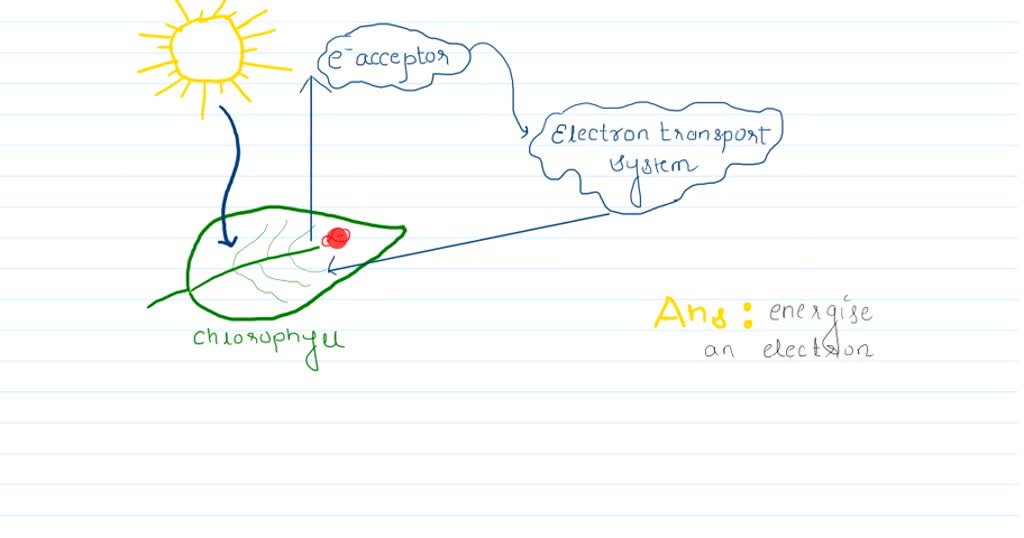 e⁻ acceptor
Electron transport
system
chlorophyll
Ans : energise
an electron